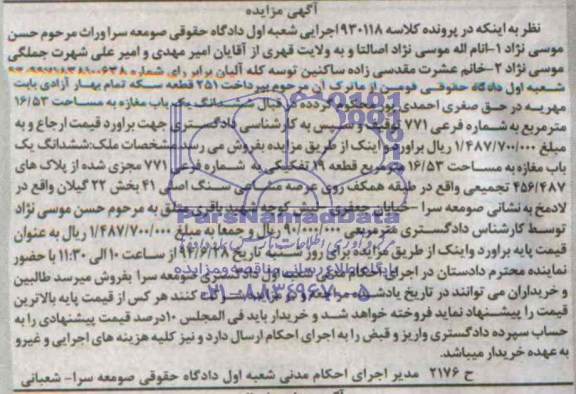 آگهی مزایده
نظر به اینکه در پرونده کلاسه ۹۳۰۱۱۸ اجرایی شعبه اول دادگاه حقوقی صومعه سرا وراث مرحوم حسن
موسی نژاد ۱-انام اله موسی نژاد اصالتا و به ولایت قهری از آقایان امیر مهدی و امیر علی شهرت جملگی
موسی نژاد ۲-خانم عشرت مقدسی زاده ساکنین توسه کله آلیان برابر رای شماره
شعبه اول دادگاه حقوقی فومن از ماترک آن مرحوم بپرداخت ۲۵۱ قطعه سکه تمام بهار آزادی بابت
مهریه در حق صغری احمدی محکوم گردیده در قبال ششدانگ یک باب مغازه به مساحت ۱۶/۵۳
مترمربع به شماره فرعی ۷۷۱ توقیف و سپس به کارشناسی دادگستری جهت براورد قیمت ارجاع و به
مبلغ ۱/۴۸۷/۷۰۰/۰۰۰ ریال براورد و اینک از طریق مزایده بفروش می رسد مشخصات ملک:ششدانگ یک
باب مغازه به مساحت ۱۶/۵۳ مترمربع قطعه ۱۹ تفکیکی به شماره فرعی ۷۷۱ مجزی شده از پلاک های
۴۵۶/۴۸۷ تجمیعی واقع در طبقه همکف روی عرصه مشاعی سنگ اصلی ۴۱ بخش ۲۲ گیلان واقع در
لادمخ به نشانی صومعه سرا - خیابان جعفری - نبش کوچه شهید باقری متعلق به مرحوم حسن موسی نژاد
توسط کارشناس دادگستری مترمربعی ۹۰/۰۰۰/۰۰۰ ریال و جمعا به مبلغ ۱/۴۸۷/۷۰۰/۰۰۰ ریال به عنوان
قیمت پایه براورد واینک از طریق مزایده برای روز شنبه تاریخ ۹۴/۶/۲۸ از ساعت ۱۰ الی ۱۱:۳۰ با حضور
نماینده محترم دادستان در اجرای احکام مدنی شعبه اول دادگستری صومعه سرا بفروش میرسد طالبین
و خریداران می توانند در تاریخ یادشده مراجعه و در مزایده شرکت کنند هر کس از قیمت پایه بالاترین
قیمت را پیشنهاد نماید فروخته خواهد شد و خریدار باید فی المجلس ۱۰درصد قیمت پیشنهادی را به
حساب سپرده دادگستری واریز و قبض را به اجرای احکام ارسال دارد و نیز کلیه هزینه های اجرایی و غیرو
به عهده خریدار میباشد.
ح ۲۱۷۶ مدیر اجرای احکام مدنی شعبه اول دادگاه حقوقی صومعه سرا- شعبانی
ParsNamadData
پایگاه اطلاع رسانی مناقصه و مزایده
۰۲۱-۸۸۳۴۹۶۷۰-۵